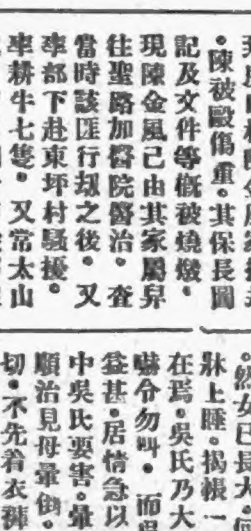 。陳被毆傷重。其保長圖
記及文件等概被燒燬。
現陳金風已由其家屬舁
往聖路加醫院醫治。查
當時該匪行刼之後。又
率部下赴東坪村騷擾。
牽耕牛七隻。又常太山
。然女已長大
牀上睡。揭帳一
在焉。吳氏乃大
嚇令勿叫。而
益甚。居情急以
中吳氏要害。暈
順治見母暈倒。
切。不先着衣褲